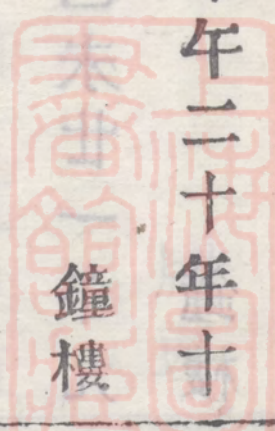 午二十年十
鐘樓